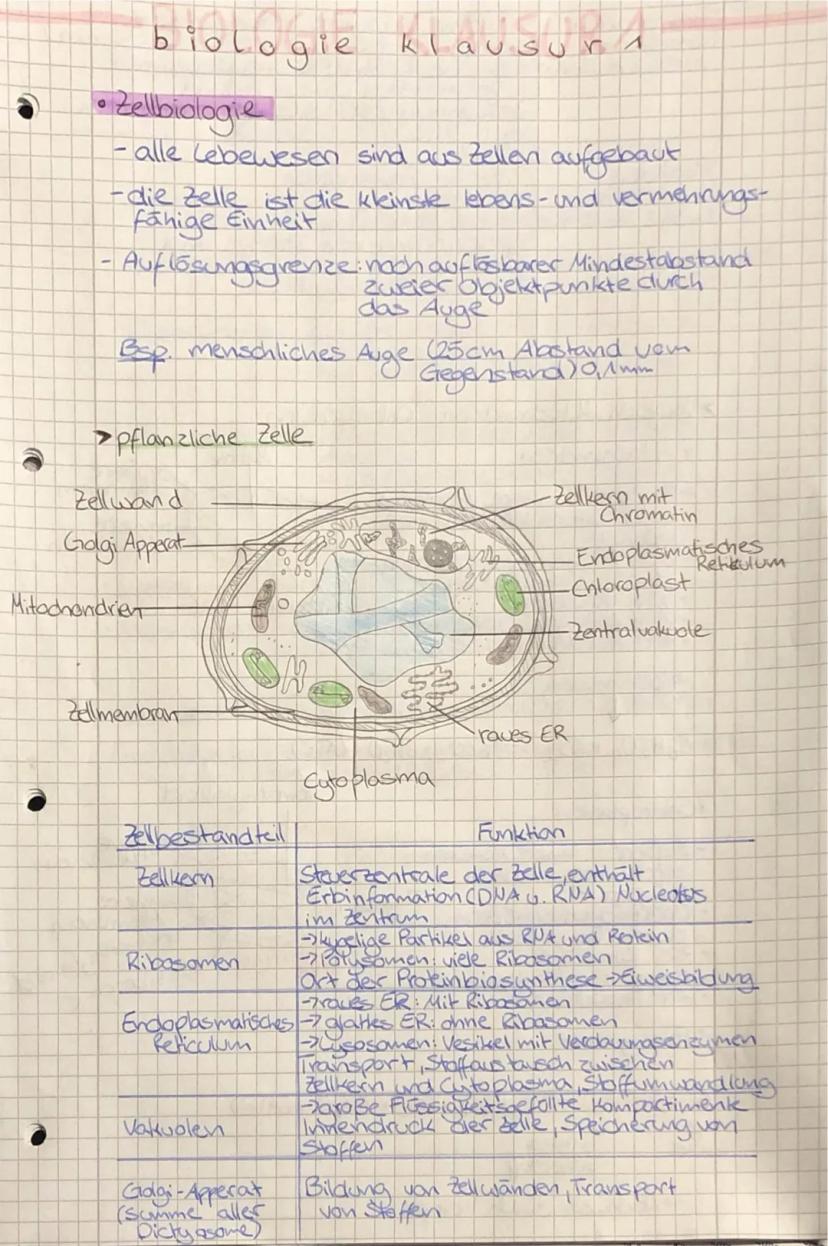 biologie klausur 1
• Zellbiologie
- alle Lebewesen sind aus Zellen aufgebaut
- die Zelle ist die kleinste lebens- und vermehrungs-
fähige Einheit
- Auflösungsgrenze: noch auflösbarer Mindestabstand
zweier Objektpunkte durch
das Auge
Bsp. menschliches Auge (25cm Abstand vom
Gegenstand) 0,1mm
> pflanzliche Zelle
Zellwand
Zellkern mit
Chromatin
Golgi Apperat
Endoplasmatisches
Retikulum
Chloroplast
Mitochondrien
Zentralvakuole
Zellmembran
raues ER
Cytoplasma
Zelbestandteil | Funktion
Zellkern
Steuerzentrale der Zelle, enthält
Erbinformation (DNA u. RNA) Nucleolus
im Zentrum
Ribosomen
→ kugelige Partikel aus RNA und Protein
→ Polysomen: viele Ribosomen
Ort der Proteinbiosynthese → Eiweisbildung
Endoplasmatisches
Reticulum
→ raues ER: Mit Ribosomen
→ glattes ER: ohne Ribosomen
→ Lysosomen: Vesikel mit Verdauungsenzymen
Transport, Stoffaustausch zwischen
Zellkern und Cytoplasma, Stoffumwandlung
Vakuolen
→ große Flüssigkeitsgefüllte Kompartimente
Innendruck der Zelle, Speicherung von
Stoffen
Golgi-Apperat
(Summe aller
Dictyosome)
Bildung von Zellwänden, Transport
von Stoffen